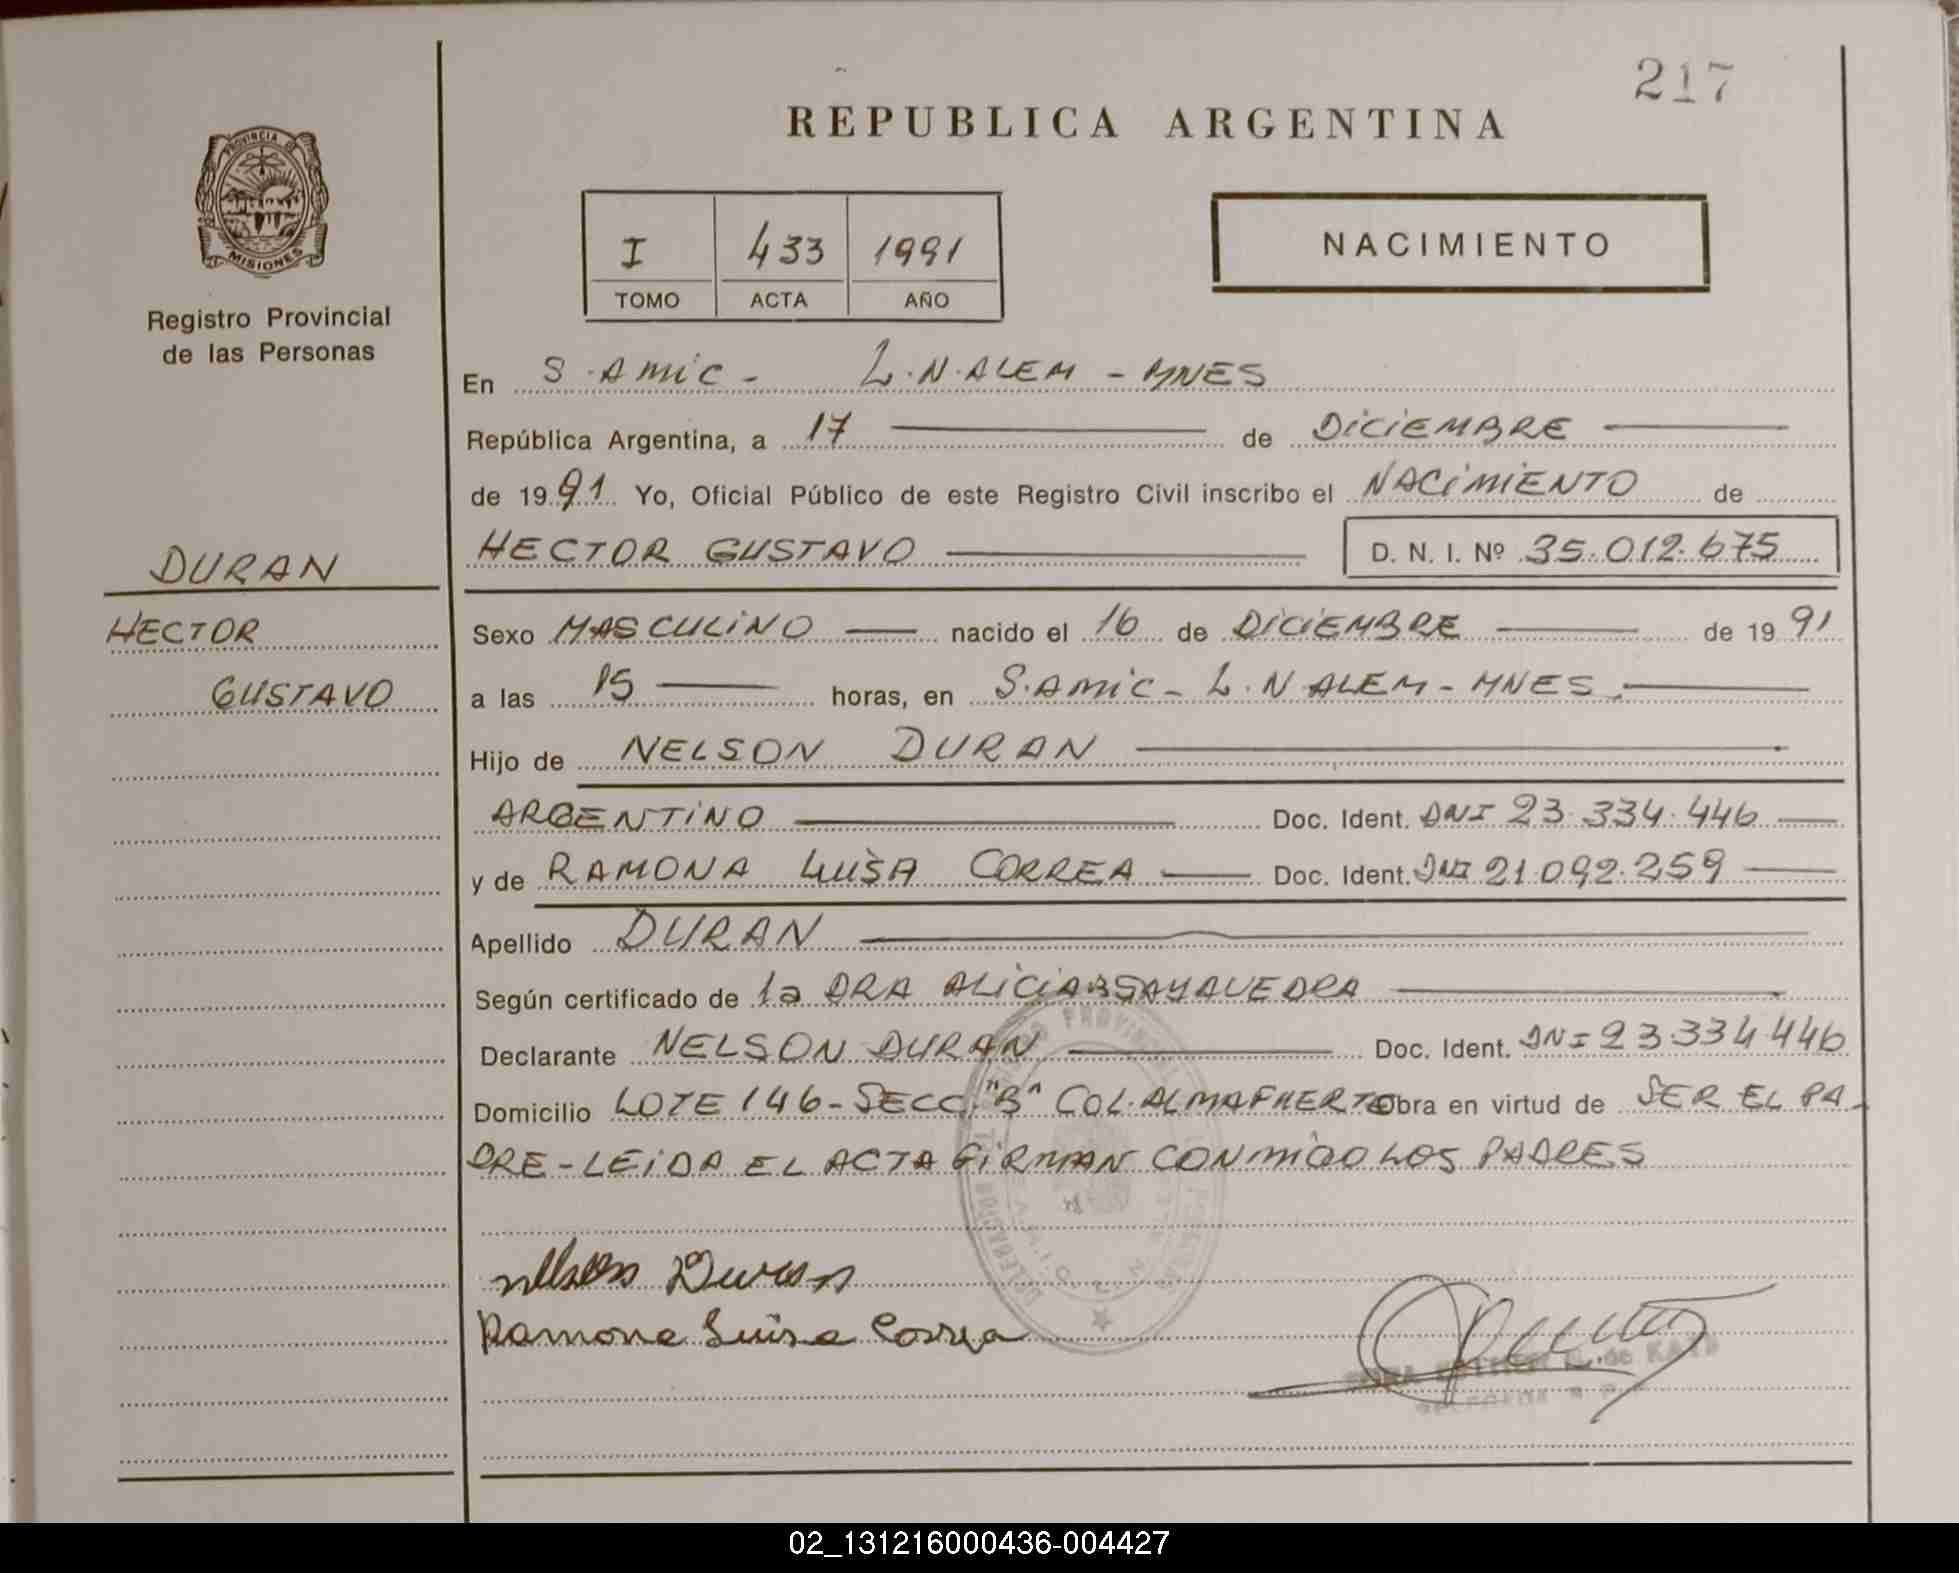 217
REPUBLICA ARGENTINA
PROVINCIA DE
MISIONES
Registro Provincial
de las Personas
I 433 1991
TOMO ACTA AÑO
NACIMIENTO
En S. AMIC - L. N. ALEM - MNES
República Argentina, a 17 de DICIEMBRE
de 1991 Yo, Oficial Público de este Registro Civil inscribo el NACIMIENTO de
HECTOR GUSTAVO D. N. I. Nº 35.012.675
DURAN
HECTOR
GUSTAVO
Sexo MASCULINO nacido el 16 de DICIEMBRE de 1991
a las 15 horas, en S. AMIC - L. N ALEM - MNES
Hijo de NELSON DURAN
ARGENTINO Doc. Ident. DNI 23.334.446
y de RAMONA LUISA CORREA Doc. Ident. DNI 21.092.259
Apellido DURAN
Según certificado de la DRA ALICIA SAYAVEDRA
Declarante NELSON DURAN Doc. Ident. DNI 23.334.446
Domicilio LOTE 146 - SECC. "B" COL. ALMAFUERTE Obra en virtud de SER EL PA-
DRE - LEIDA EL ACTA FIRMAN CONMIGO LOS PADRES
Nelson Duran
Ramona Luisa Correa
de KATZ
02_131216000436-004427